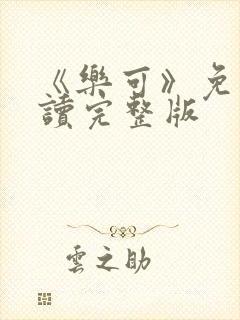 《樂可》免
讀完整版
雲之助